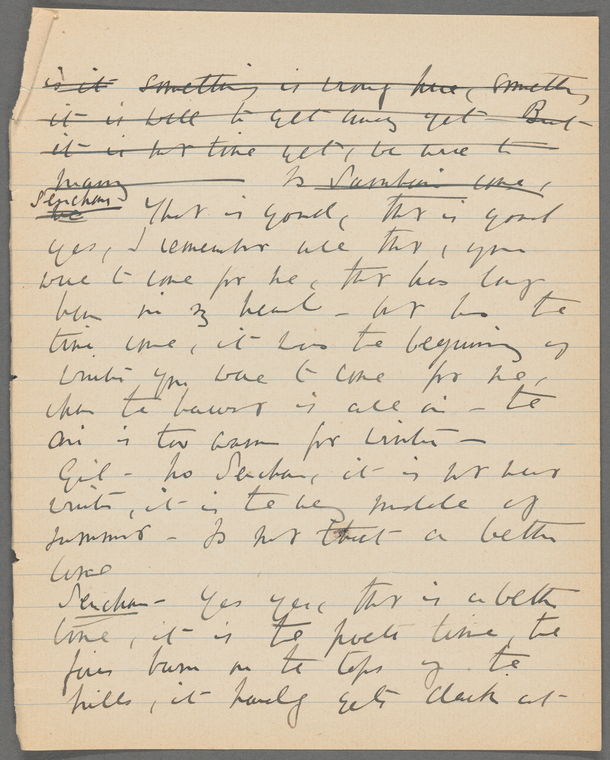 is it something is wrong here, something
it is well to get away yet But
it is not time yet, we were to
marry Is Samhain come,
Senchan
be That is good, that is good
yes, I remember all that, you
were to come for me, that has long
been in my head - but has the
time come, it was the beginning of
winter you were to come for me,
when the harvest is all in - the
air is too warm for winter -
Girl - No Senchan, it is not near
winter, it is the very middle of
summer - Is not that a better
time
Senchan - Yes yes, that is a better
time, it is the poets time, the
fires burn on the tops of the
hills, it hardly gets dark at